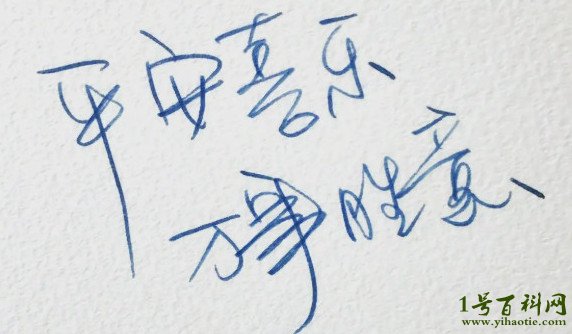 平安喜乐
万事胜意
1号百科网
www.yihaotie.com